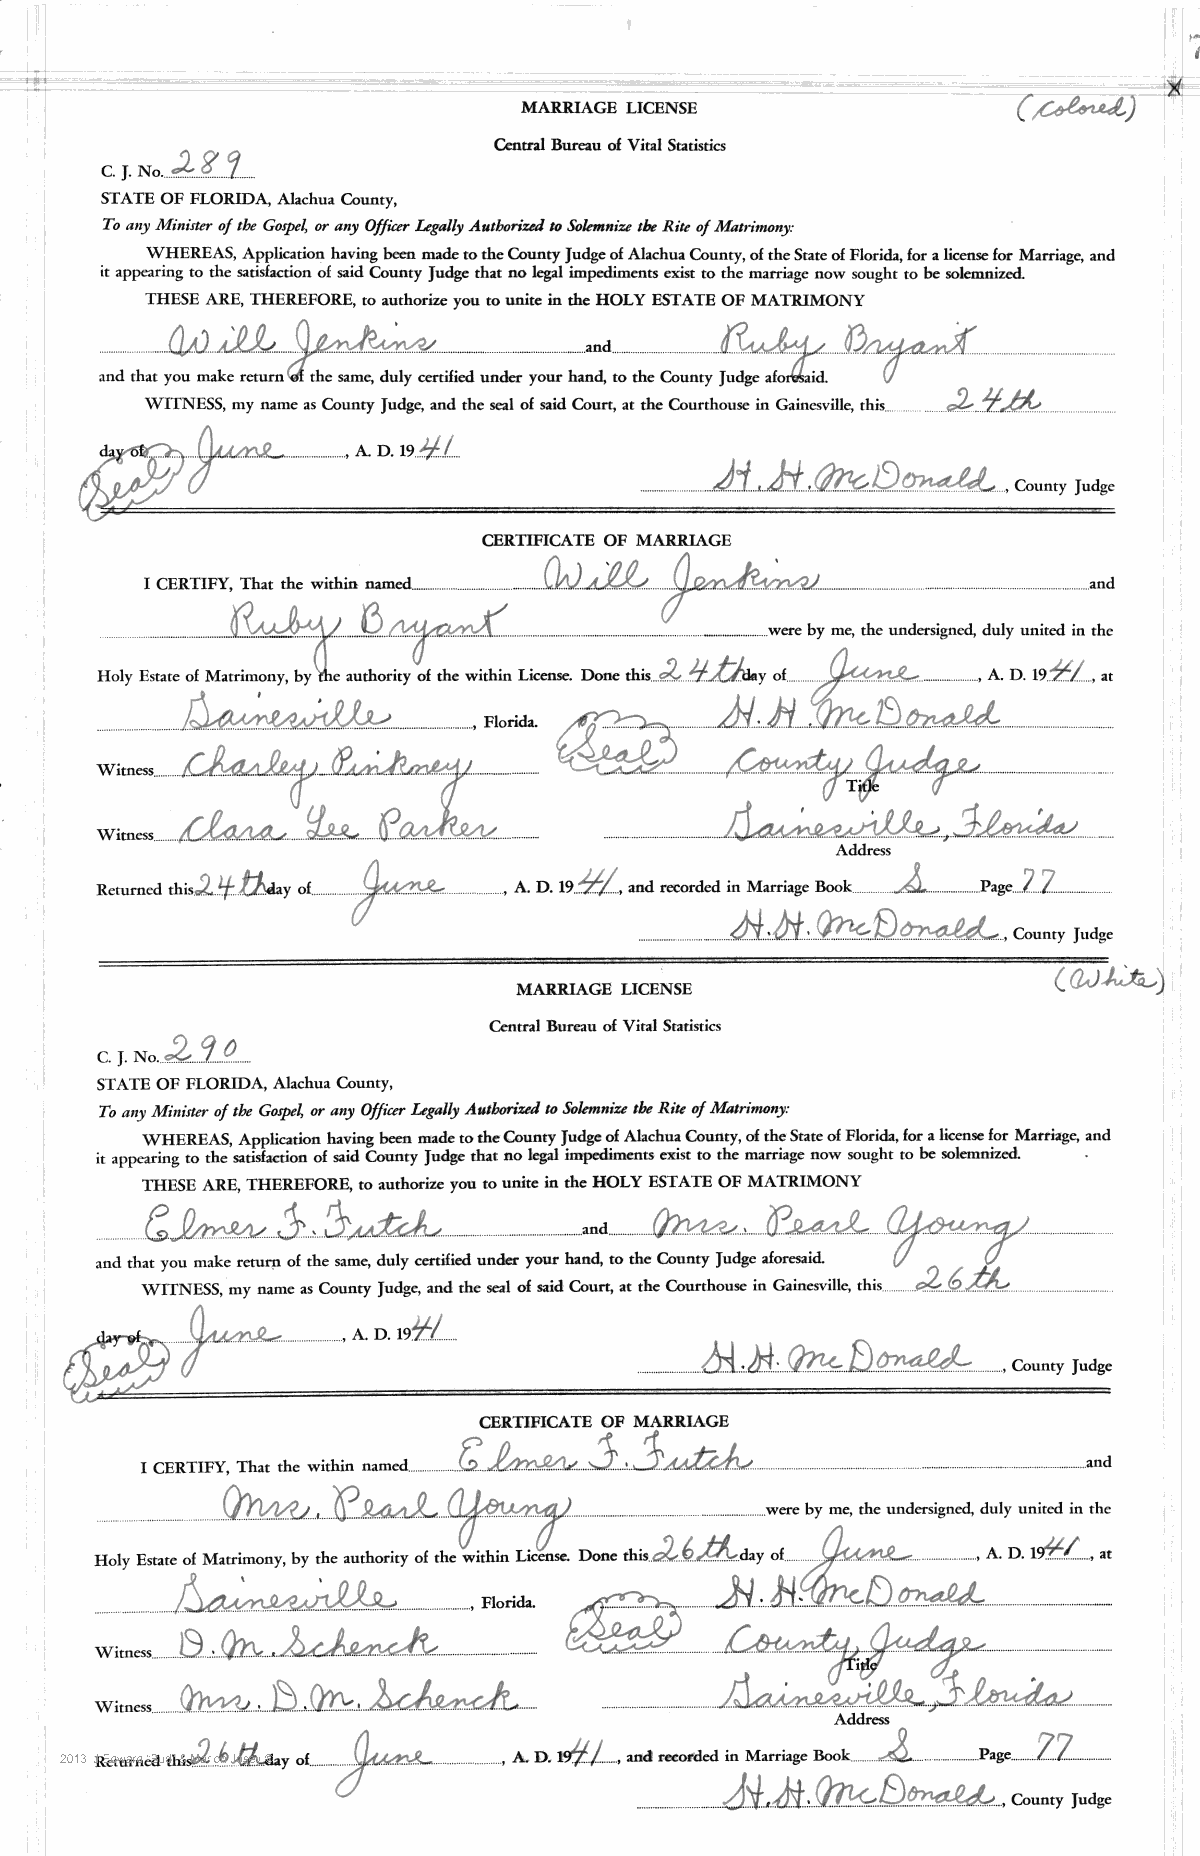 (Colored)
MARRIAGE LICENSE
Central Bureau of Vital Statistics
C. J. No. 289
STATE OF FLORIDA, Alachua County,
To any Minister of the Gospel, or any Officer Legally Authorized to Solemnize the Rite of Matrimony:
WHEREAS, Application having been made to the County Judge of Alachua County, of the State of Florida, for a license for Marriage, and
it appearing to the satisfaction of said County Judge that no legal impediments exist to the marriage now sought to be solemnized.
THESE ARE, THEREFORE, to authorize you to unite in the HOLY ESTATE OF MATRIMONY
Will Jenkins and Ruby Bryant
and that you make return of the same, duly certified under your hand, to the County Judge aforesaid.
WITNESS, my name as County Judge, and the seal of said Court, at the Courthouse in Gainesville, this 24th
day of June, A. D. 1941
(Seal)
H. H. McDonald, County Judge
CERTIFICATE OF MARRIAGE
I CERTIFY, That the within named Will Jenkins and
Ruby Bryant were by me, the undersigned, duly united in the
Holy Estate of Matrimony, by the authority of the within License. Done this 24th day of June, A. D. 1941, at
Gainesville, Florida. H. H. McDonald
(Seal)
Witness Charley Pinkney County Judge
Title
Witness Clara Lee Parker Gainesville, Florida
Address
Returned this 24th day of June, A. D. 1941, and recorded in Marriage Book S Page 77
H. H. McDonald, County Judge
(White)
MARRIAGE LICENSE
Central Bureau of Vital Statistics
C. J. No. 290
STATE OF FLORIDA, Alachua County,
To any Minister of the Gospel, or any Officer Legally Authorized to Solemnize the Rite of Matrimony:
WHEREAS, Application having been made to the County Judge of Alachua County, of the State of Florida, for a license for Marriage, and
it appearing to the satisfaction of said County Judge that no legal impediments exist to the marriage now sought to be solemnized.
THESE ARE, THEREFORE, to authorize you to unite in the HOLY ESTATE OF MATRIMONY
Elmer F. Futch and Mrs. Pearl Young
and that you make return of the same, duly certified under your hand, to the County Judge aforesaid.
WITNESS, my name as County Judge, and the seal of said Court, at the Courthouse in Gainesville, this 26th
day of June, A. D. 1941
(Seal)
H. H. McDonald, County Judge
CERTIFICATE OF MARRIAGE
I CERTIFY, That the within named Elmer F. Futch and
Mrs. Pearl Young were by me, the undersigned, duly united in the
Holy Estate of Matrimony, by the authority of the within License. Done this 26th day of June, A. D. 1941, at
Gainesville, Florida. H. H. McDonald
(Seal)
Witness D. M. Schenck County Judge
Title
Witness Mrs. D. M. Schenck Gainesville, Florida
Address
2013
Returned this 26th day of June, A. D. 1941, and recorded in Marriage Book S Page 77
H. H. McDonald, County Judge